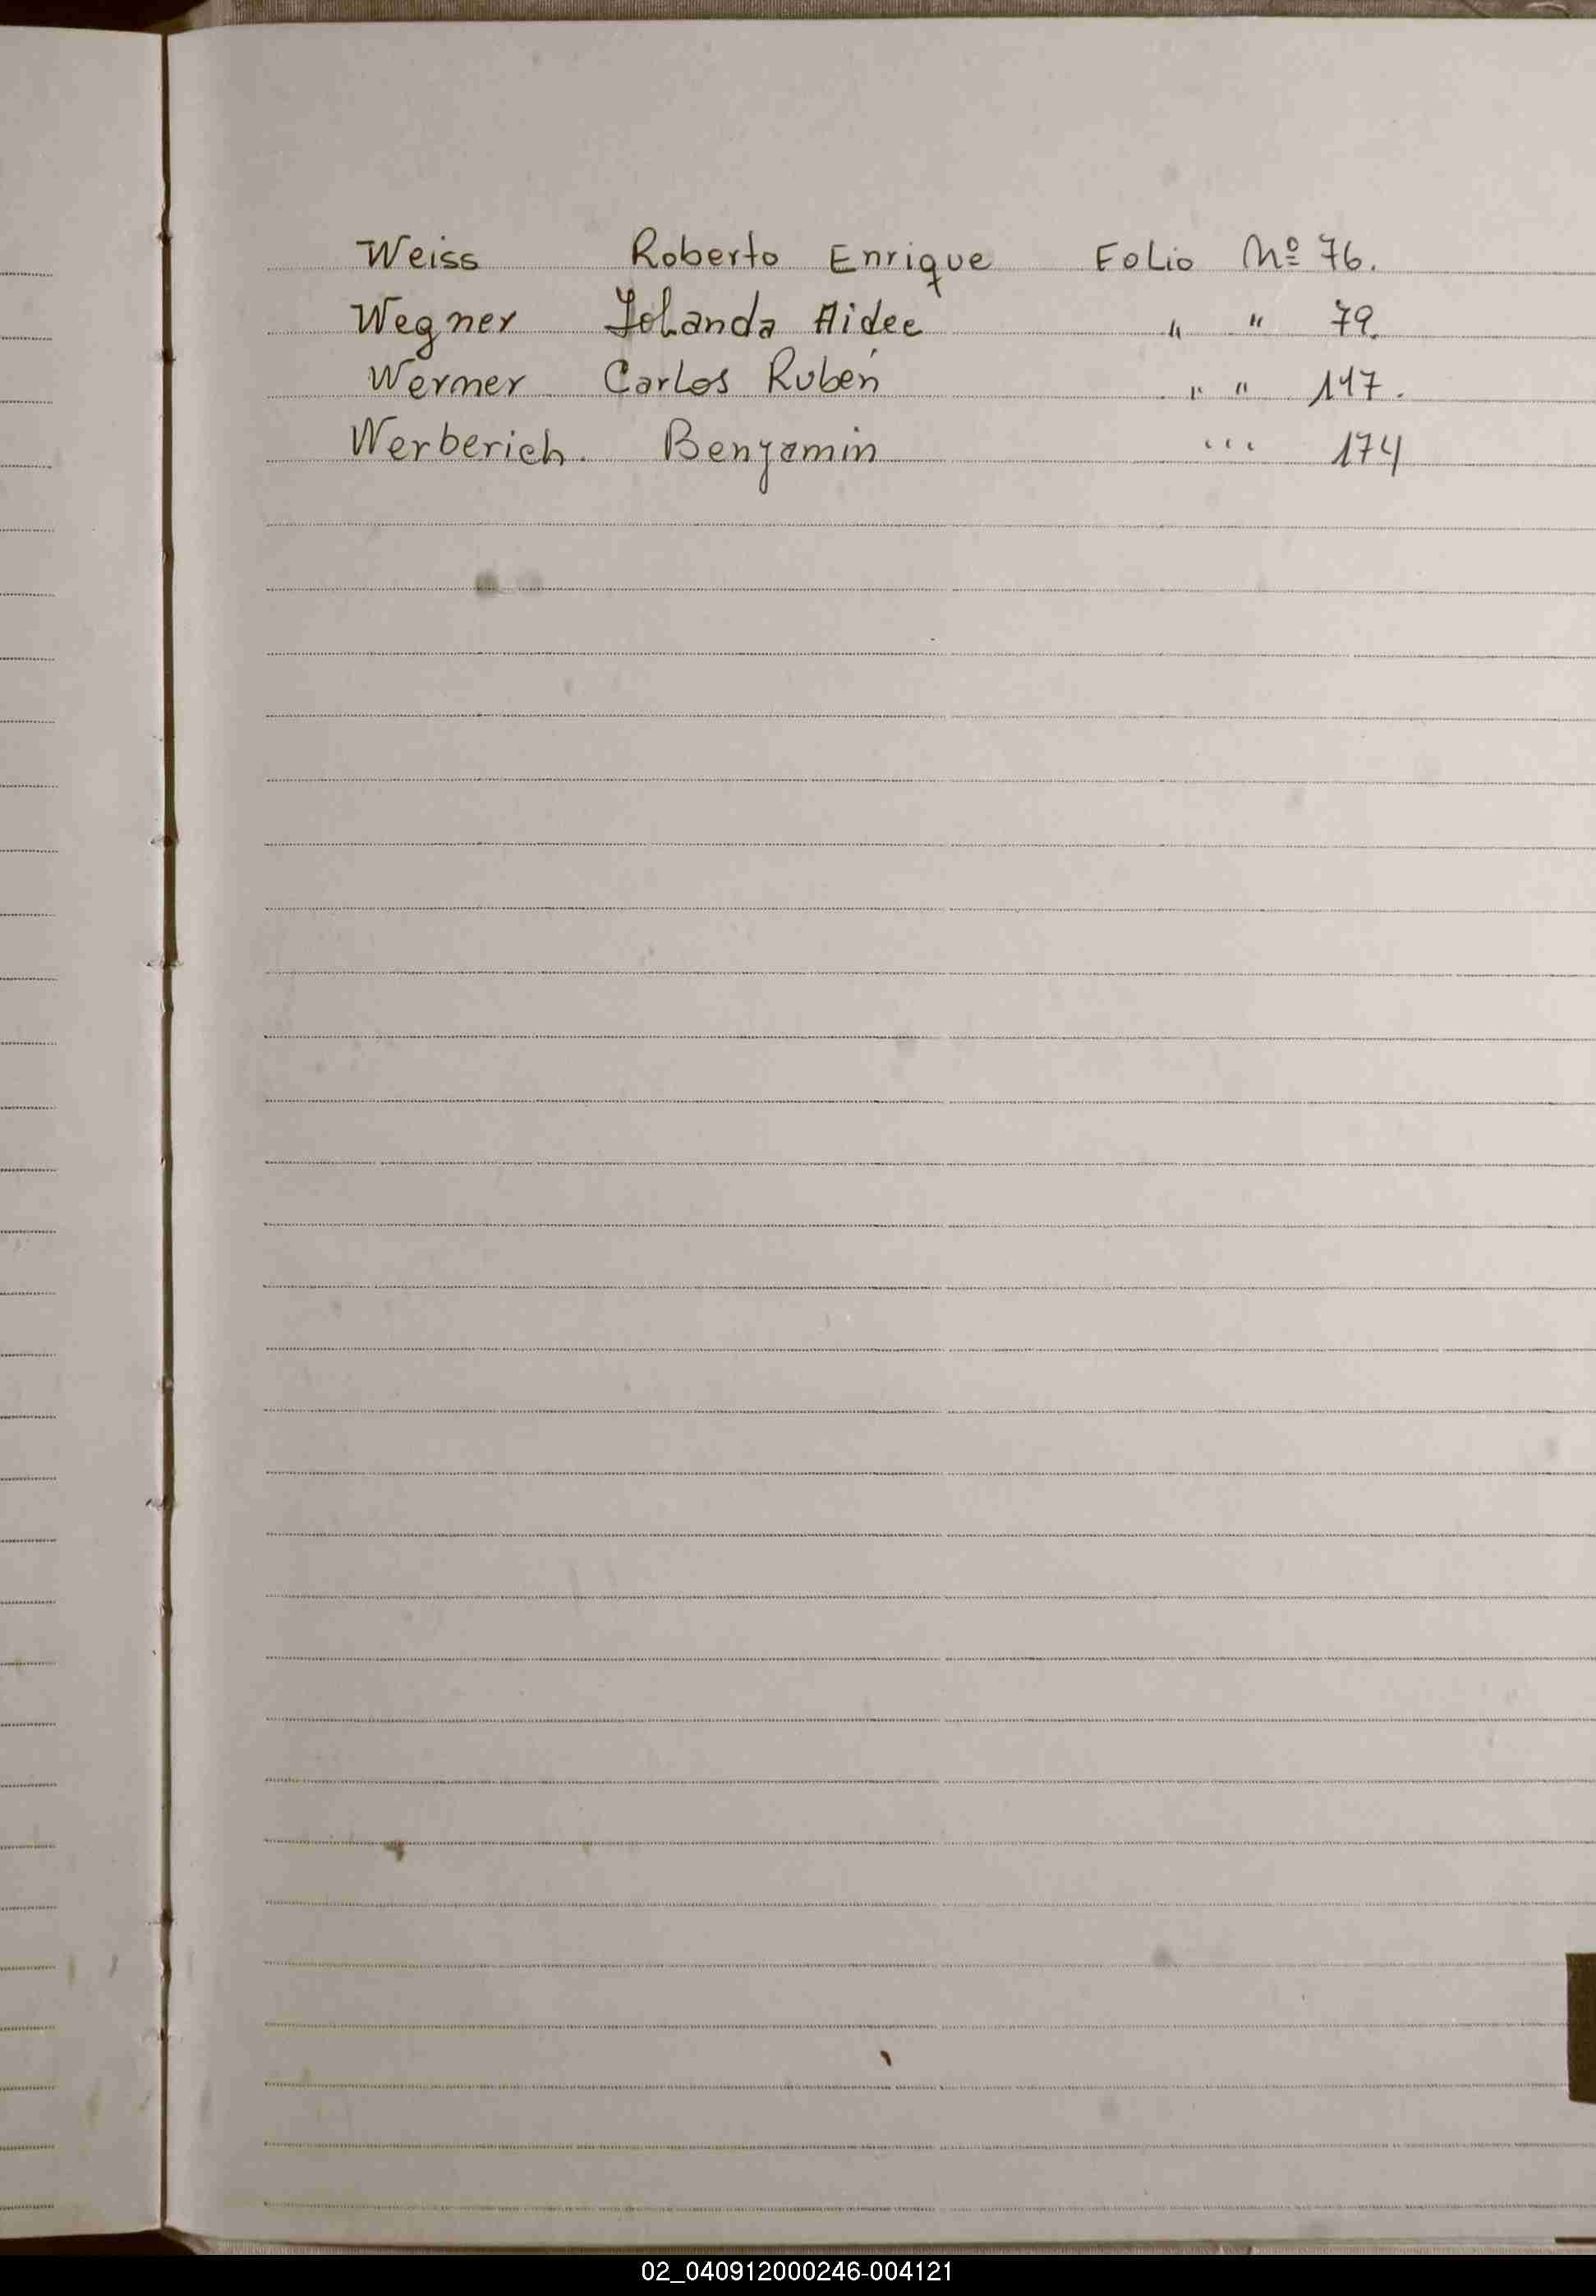 Weiss Roberto Enrique Folio Nº 76.
Wegner Iolanda Aidee " " 79.
Werner Carlos Rubén " " 147.
Werberich. Benjamin " " 174
02_040912000246-004121